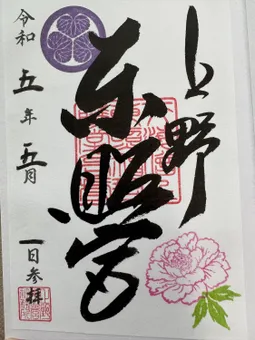 上野
東照宮
令和五年五月一日参拝